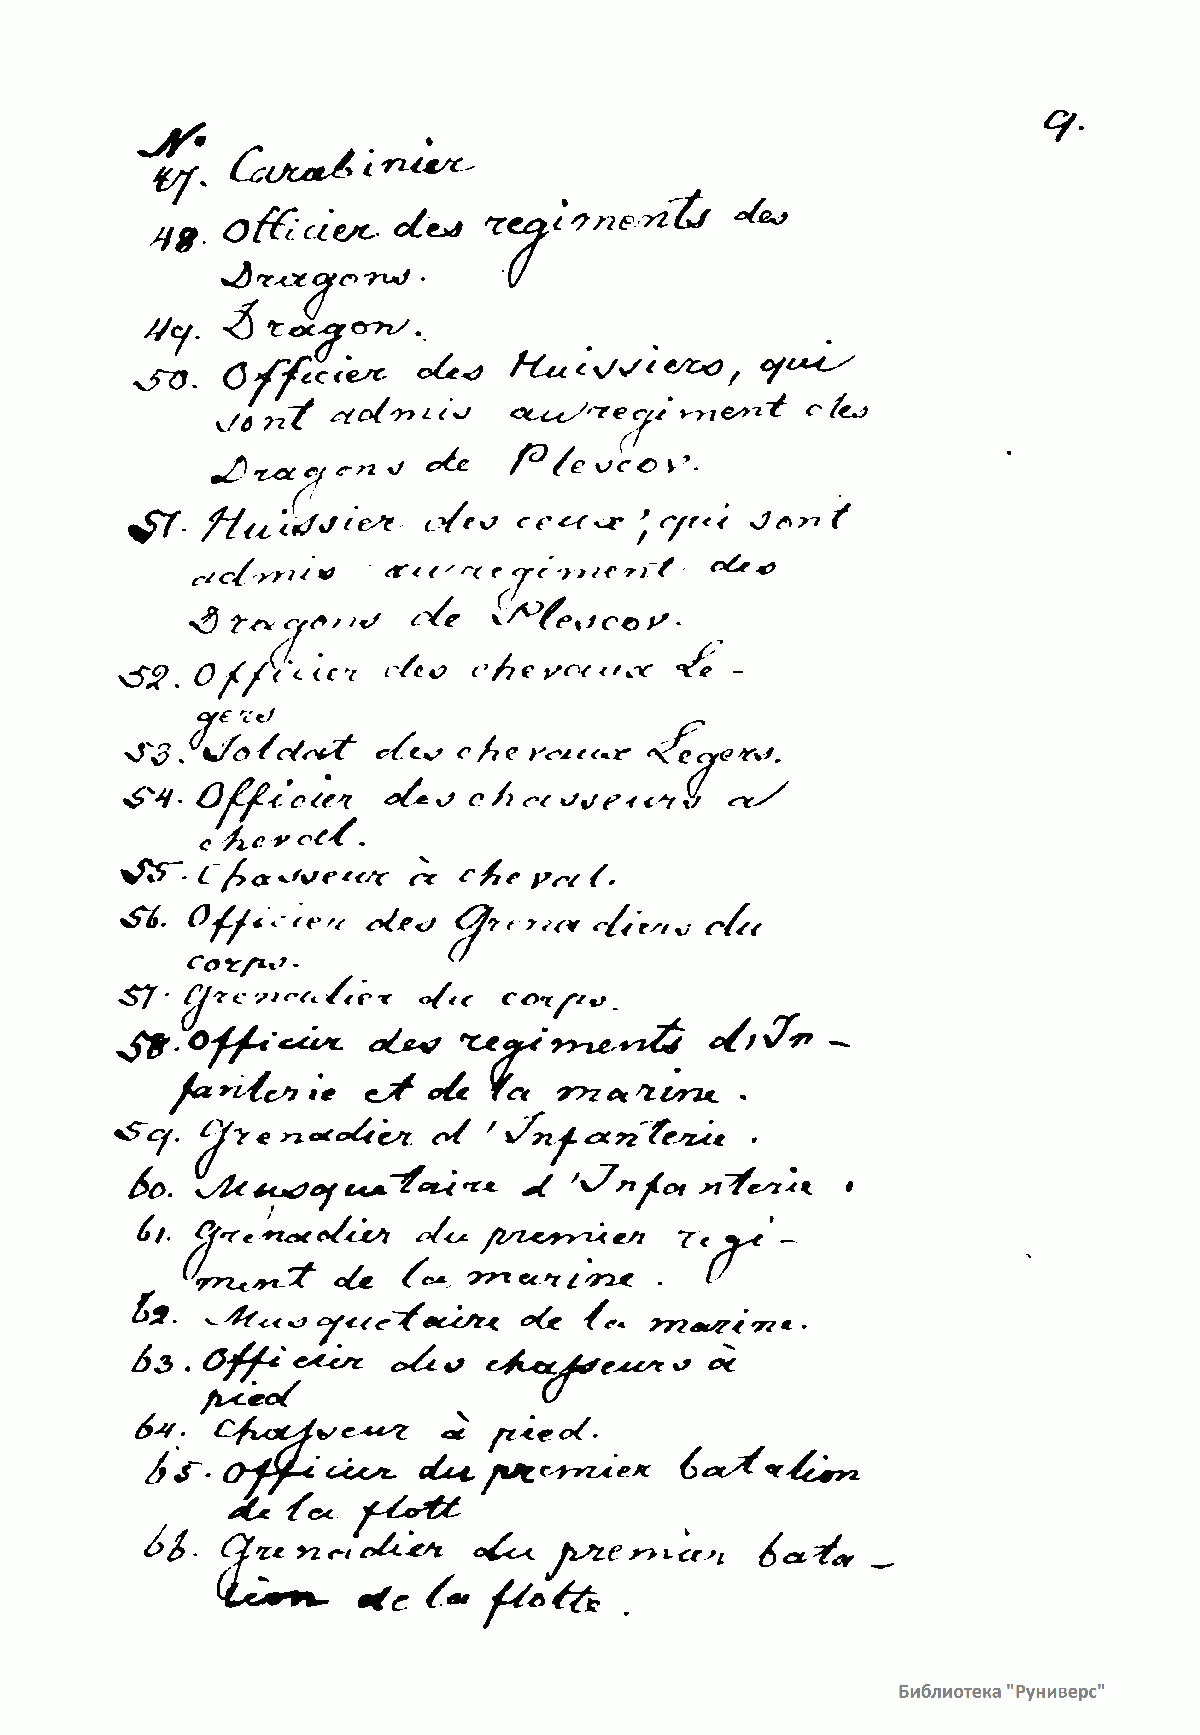 9.
No
47. Carabinier
48. Officier des regiments des
Dragons.
49. Dragon.
50. Officier des Huissiers, qui
sont admis au regiment des
Dragons de Plescov.
51. Huissier des ceux, qui sont
admis au regiment des
Dragons de Plescov.
52. Officier des chevaux Le-
gers
53. Soldat des chevaux Legers.
54. Officier des chasseurs a
cheval.
55. Chasseur à cheval.
56. Officier des Grenadiers du
corps.
57. Grenadier du corps.
58. Officier des regiments d'In-
fanterie et de la marine.
59. Grenadier d'Infanterie.
60. Musquetaire d'Infanterie.
61. Grenadier du premier regi-
ment de la marine.
62. Musquetaire de la marine.
63. Officier des chasseurs à
pied
64. Chasseur à pied.
65. Officier du premier batalion
de la flott
66. Grenadier du premier bata-
lion de la flotte.
Библиотека "Руниверс"